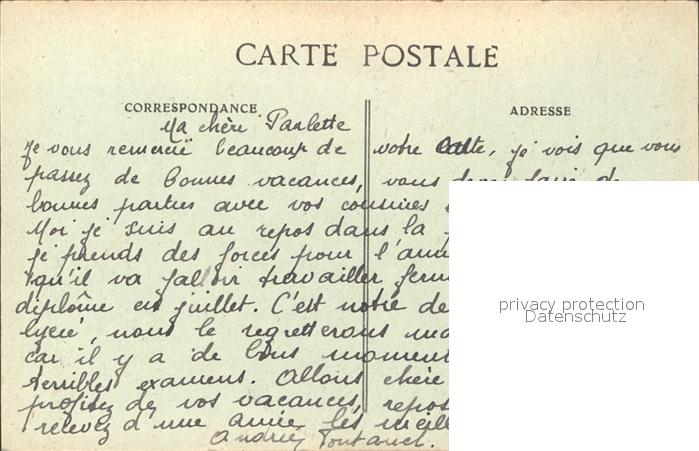 CARTE POSTALE
CORRESPONDANCE
ADRESSE
Ma chère Paulette
Je vous remercie beaucoup de votre carte, je vois que vous
passez de bonnes vacances, vous de
bonnes parties avec vos cousines
Moi je suis au repos dans la
je prends des forces pour l'ann
qu'il va falloir travailler ferm
diplôme en juillet. C'est notre de
lycée, nous le regretterons ma
car il y a de bons moment
terribles examens. Allons chère
profitez de vos vacances, repos
recevez d'une amie les meill
Andrée
privacy protection
Datenschutz